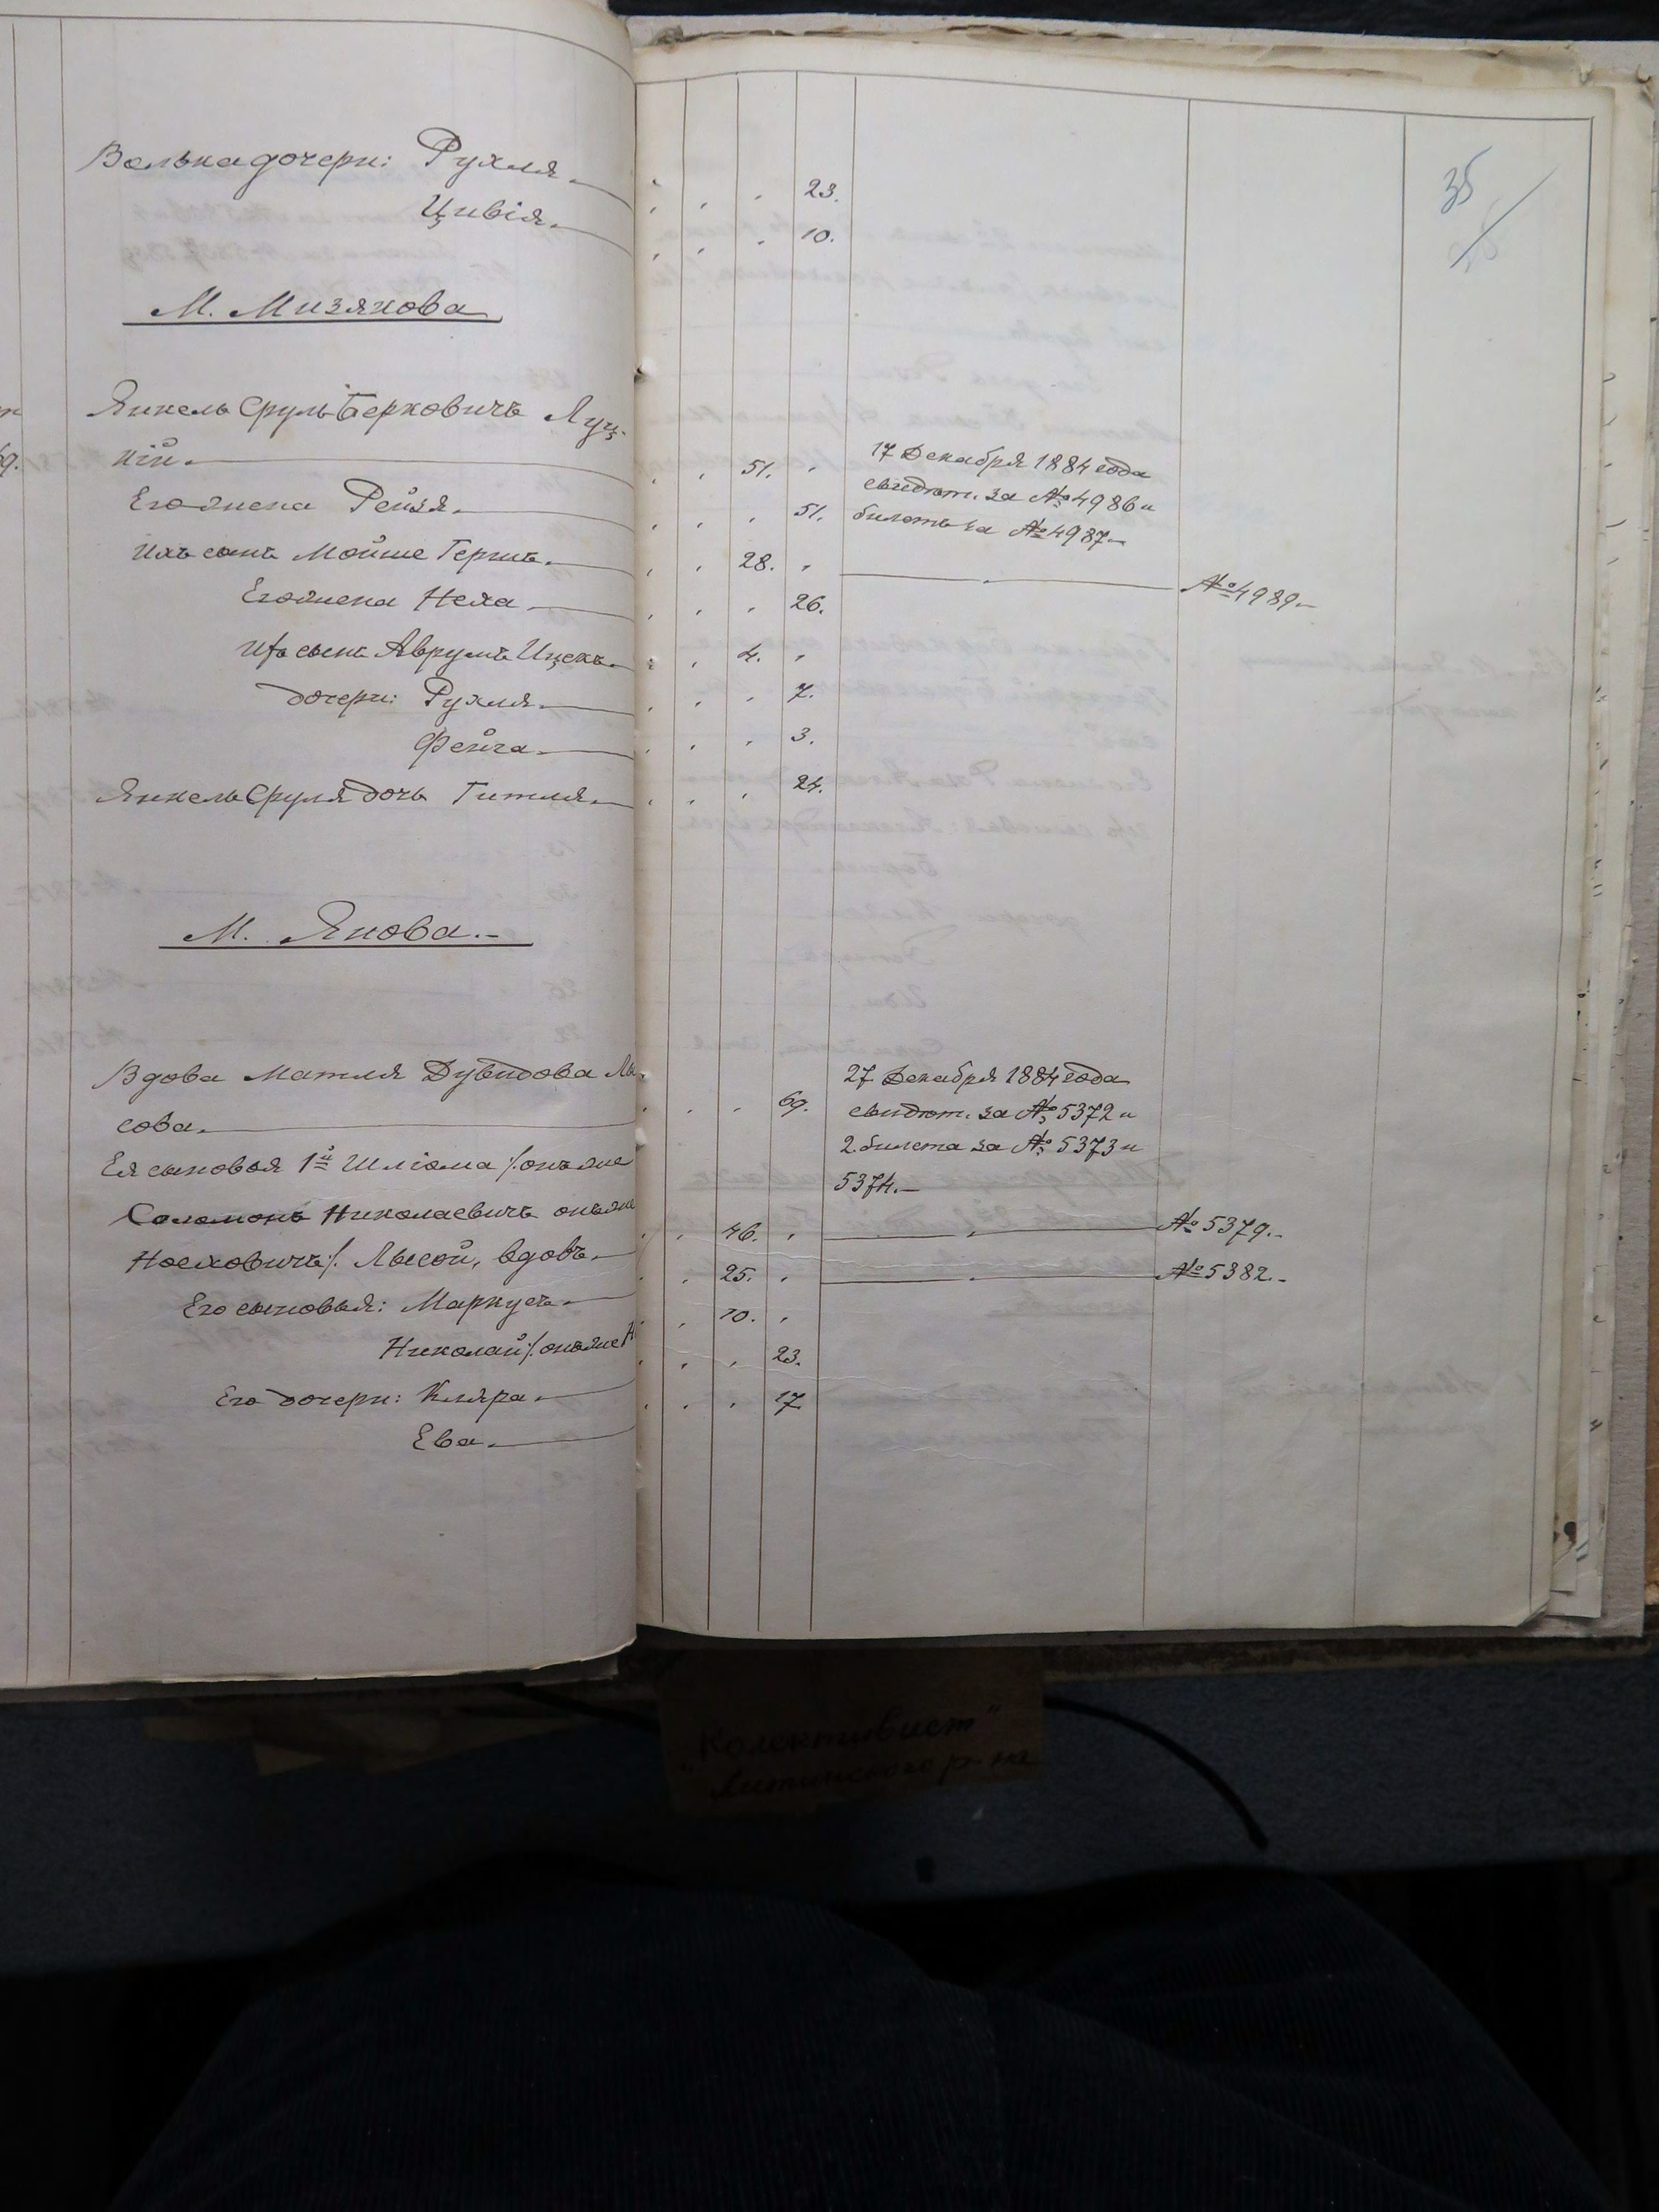 35
Волька дочери: Рухля 23.
Цивія. 10.
М. Мизякова
Янкель Сруль Берковичъ Луц-
кій. 51.
17 Декабря 1884 года
свидѣт. за № 4986 и
билетъ за № 4987
Его жена Рейзя. 51.
Ихъ сынъ Мойше Гершъ. 28. № 4989.
Его жена Неха 26.
Ихъ сынъ Аврумъ Ицекъ 4.
дочери: Рухля. 7.
Фейга. 3.
Янкель Сруля дочь Гитля. 24.
М. Янова.
Вдова Матля Дувидова Лы
сова. 69.
27 Декабря 1884 года
свидѣт. за № 5372 и
2 билета за № 5373 и
5374.
Ея сыновья 1й Шліома /. онъ же
Соломонъ Николаевичъ онъ же
Носховичъ/. Лысой, вдовъ. 46. № 5379.
Его сыновья: Маркусъ. 25. № 5382.
Николай /. онъ же Н 10.
Его дочери: Кляра. 23.
Ева. 17
"Колективист"
Литинского р-на